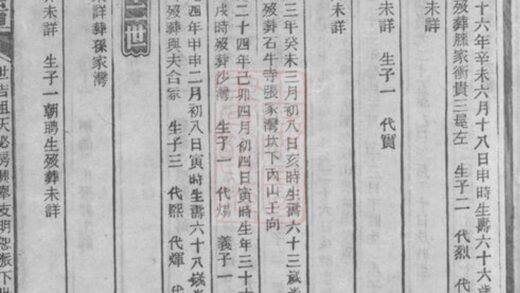 十六年辛未六月十八日申時生壽六十六歲
歿葬滕家衝貴三屋左 生子二 代烈 代
未詳 生子一 代寶
未詳
三年癸未三月初八日亥時生壽六十三歲
歿葬石牛寺張家灣坎下丙山壬向
二十四年己卯四月初四日寅時生三十
戌時歿葬沙灣 生子一 代煬 義子一
四年甲申二月初八日寅時生壽六十八歲
歿葬與夫合冢 生子三 代熙 代輝 代
世
未詳葬孫家灣
未詳 生子一朝聘生歿葬未詳
世吉祖天必房